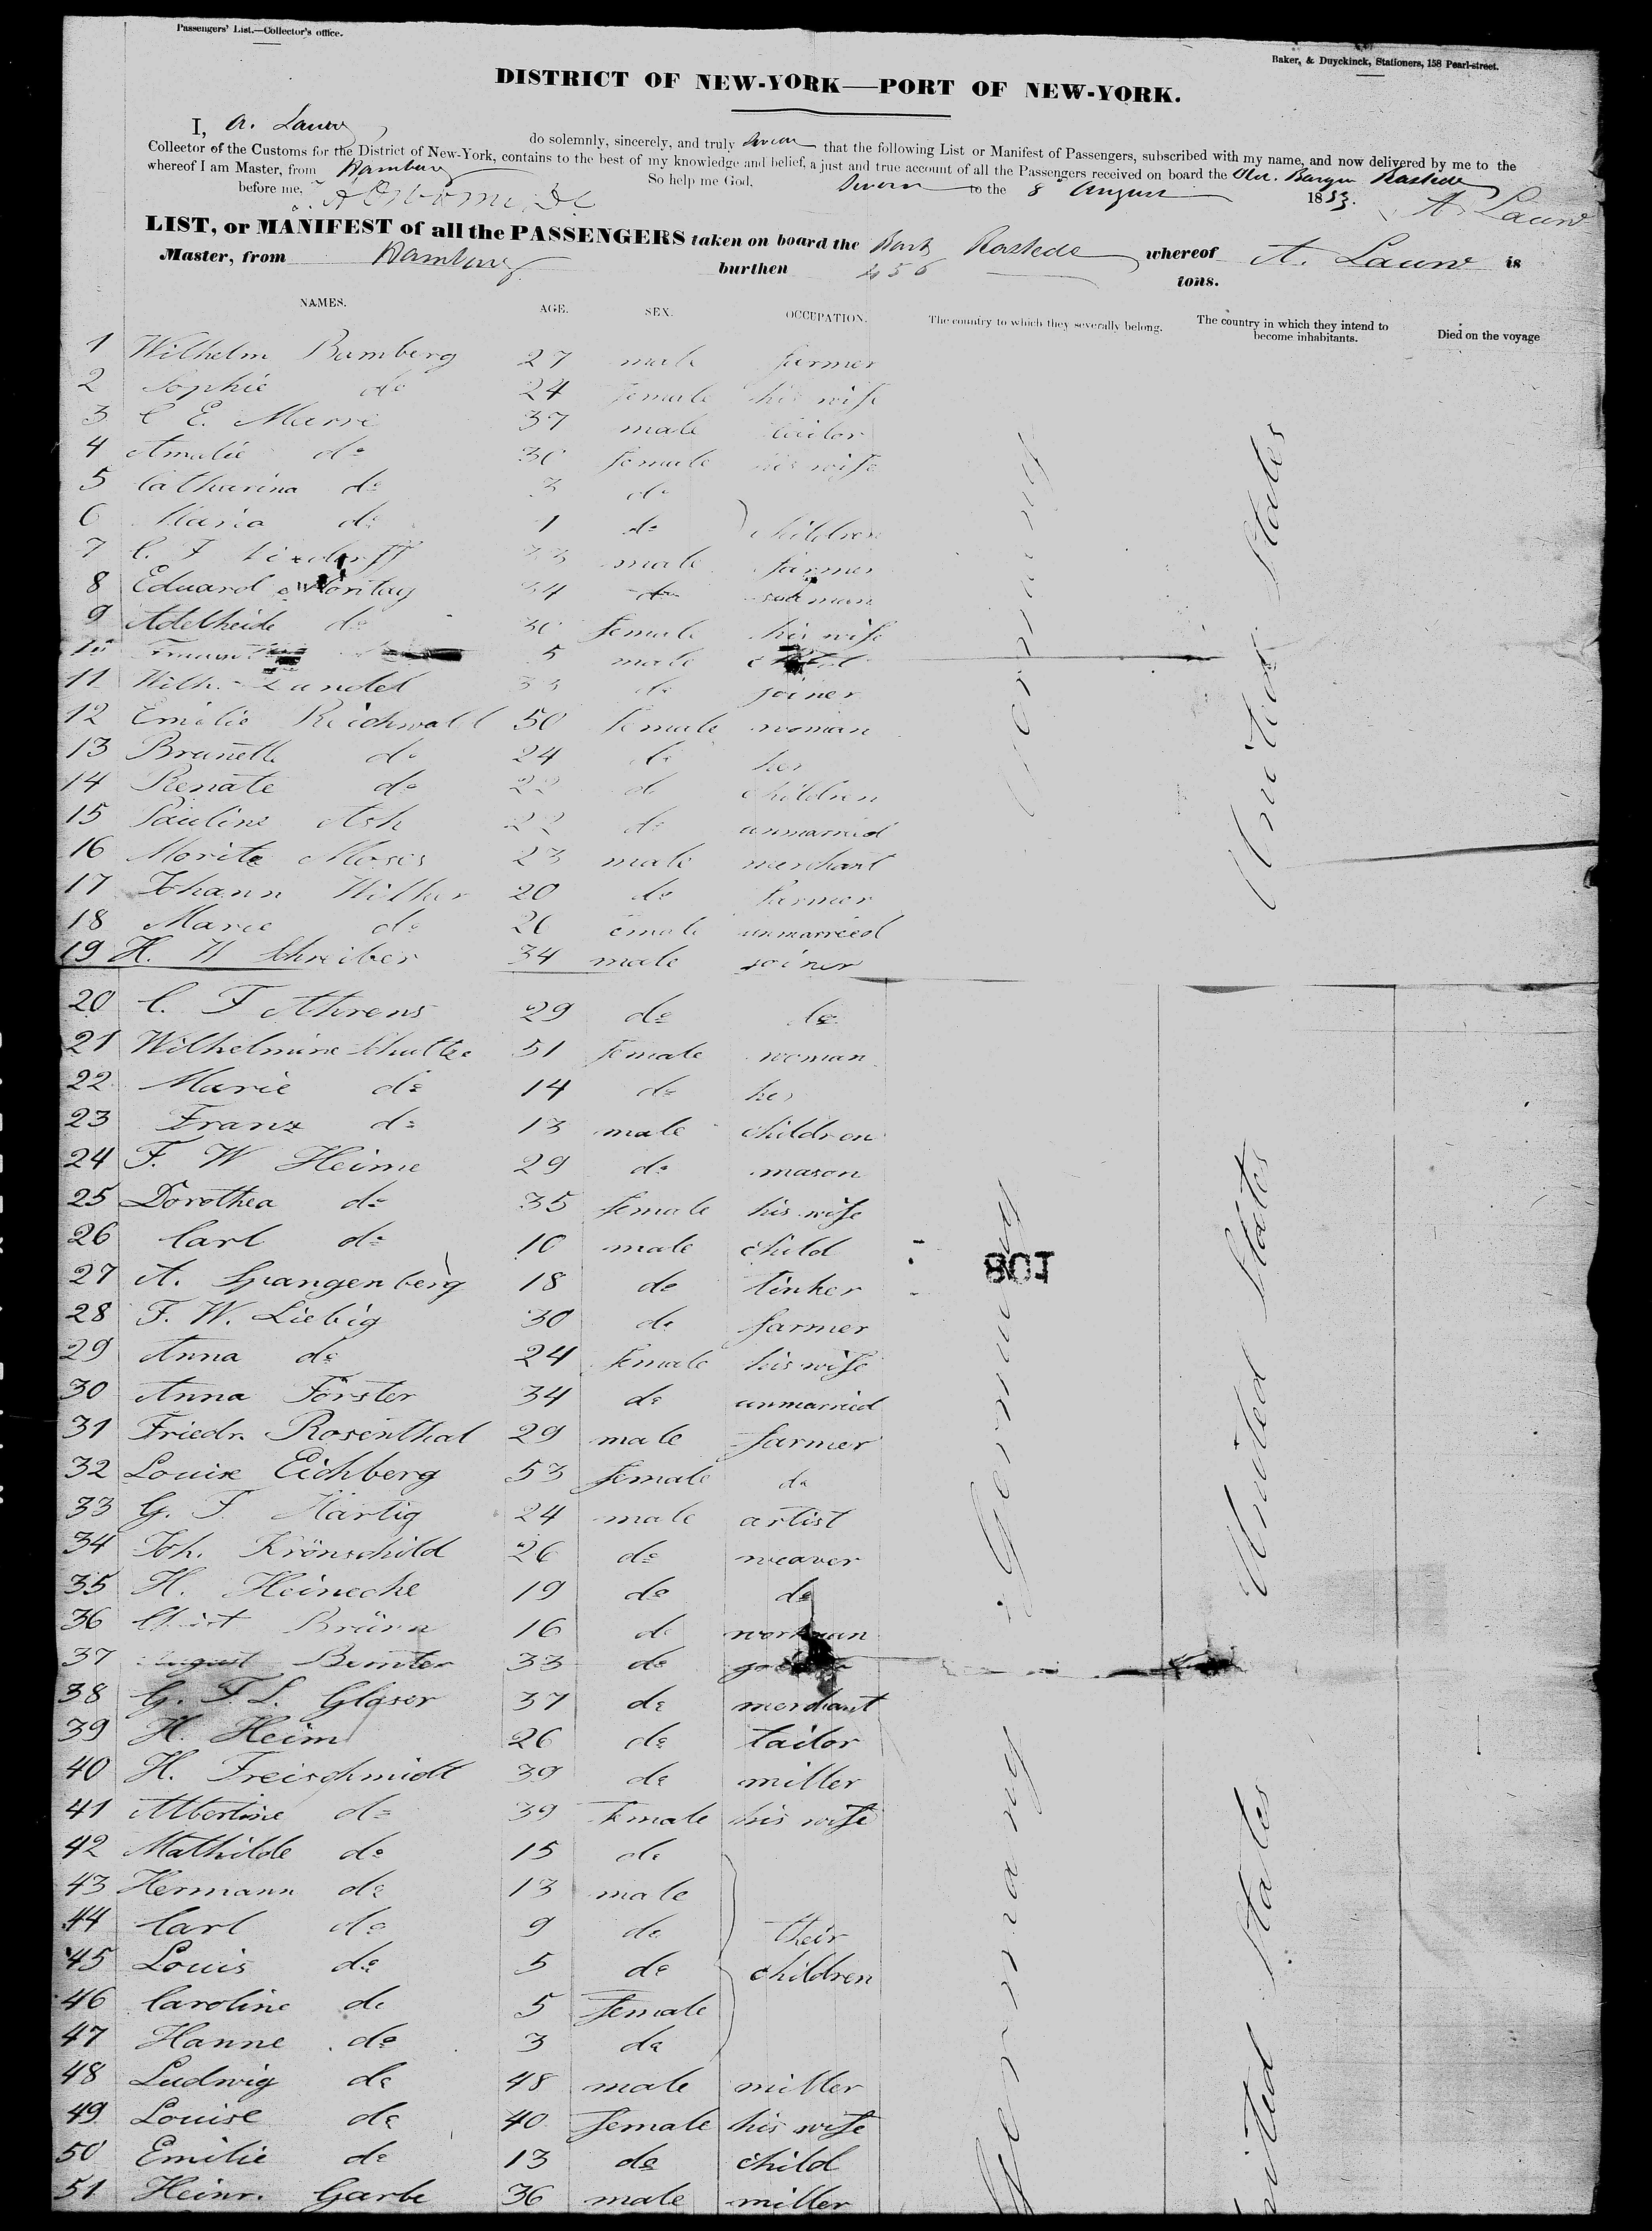 Passengers' List.—Collector's office.
Baker, & Duyckinck, Stationers, 158 Pearl-street.
DISTRICT OF NEW-YORK—PORT OF NEW-YORK.
I, A. Lauw do solemnly, sincerely, and truly swear that the following List or Manifest of Passengers, subscribed with my name, and now delivered by me to the
Collector of the Customs for the District of New-York, contains to the best of my knowledge and belief, a just and true account of all the Passengers received on board the Old. Barque Rastede
whereof I am Master, from Hamburg So help me God. Sworn to the 8 August 1853. A. Lauw
before me,
LIST, or MANIFEST of all the PASSENGERS taken on board the Bark Rastede whereof A. Lauw is
Master, from Hamburg burthen 456 tons.
NAMES. AGE. SEX. OCCUPATION. The country to which they severally belong. The country in which they intend to become inhabitants. Died on the voyage
1 Wilhelm Bamberg 27 male farmer
2 Sophie do 24 female his wife
3 C E. Marre 37 male tailor
4 Amalie do 30 female his wife
5 Catharina do 3 do
6 Maria do 1 do children
7 C. F 33 male farmer
8 Eduard Montag 34 do
9 Adelheide do 30 female his wife
10 5 male child
11 Wilh. Zundel 33 do joiner
12 Emilie Reichwald 50 female woman
13 Brunette do 24 do her
14 Renate do 22 do children
15 Pauline Ash 22 do unmarried
16 Moritz Moses 23 male merchant
17 Johann Wilker 20 do farmer
18 Marie do 26 female unmarried
19 H. W Schreiber 34 male joiner
20 C. F Ahrens 29 do do
21 Wilhelmine Schultze 51 female woman
22 Marie do 14 do her
23 Franz do 13 male children
24 F. W Heime 29 do mason
25 Dorothea do 35 female his wife
26 Carl do 10 male child
27 A. Spangenberg 18 do tinker
28 F. W. Liebig 30 do farmer
29 Anna do 24 female his wife
30 Anna Förster 34 do unmarried
31 Friedr. Rosenthal 29 male farmer
32 Louise Eichberg 53 female do
33 G. F. Hartig 24 male artist
34 Joh. Krönschild 26 do weaver
35 H. Heinecke 19 do do
36 Christ Bräun 16 do workman
37 August Bemter 33 do
38 G. F. L. Gläser 37 do merchant
39 H. Heim 26 do tailor
40 H. Freischmidt 39 do miller
41 Albertine do 39 female his wife
42 Mathilde do 15 do
43 Hermann do 13 male
44 Carl do 9 do their
45 Louis do 5 do children
46 Caroline do 5 female
47 Hanne do 3 do
48 Ludwig do 48 male miller
49 Louise do 40 female his wife
50 Emilie do 13 do child
51 Heinr. Garbe 36 male miller
Germany
United States
Germany
United States
Germany
United States
108